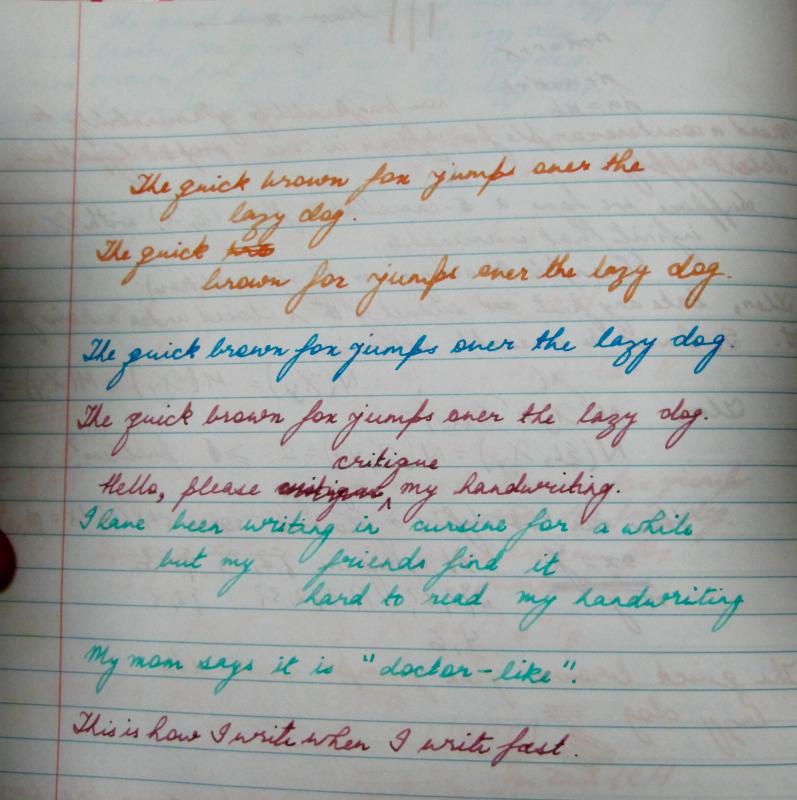 The quick brown fox jumps over the
lazy dog.
The quick
brown fox jumps over the lazy dog.
The quick brown fox jumps over the lazy dog.
The quick brown fox jumps over the lazy dog.
critique
Hello, please my handwriting.
I have been writing in cursive for a while
but my friends find it
hard to read my handwriting
My mom says it is "doctor-like".
This is how I write when I write fast.